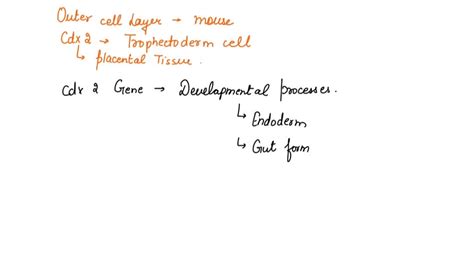 Outer cell layer → mouse
Cdx 2 → Trophectoderm cell
↳ placental Tissue.
Cdx 2 Gene → Developmental processes.
↳ Endoderm
↳ Gut form